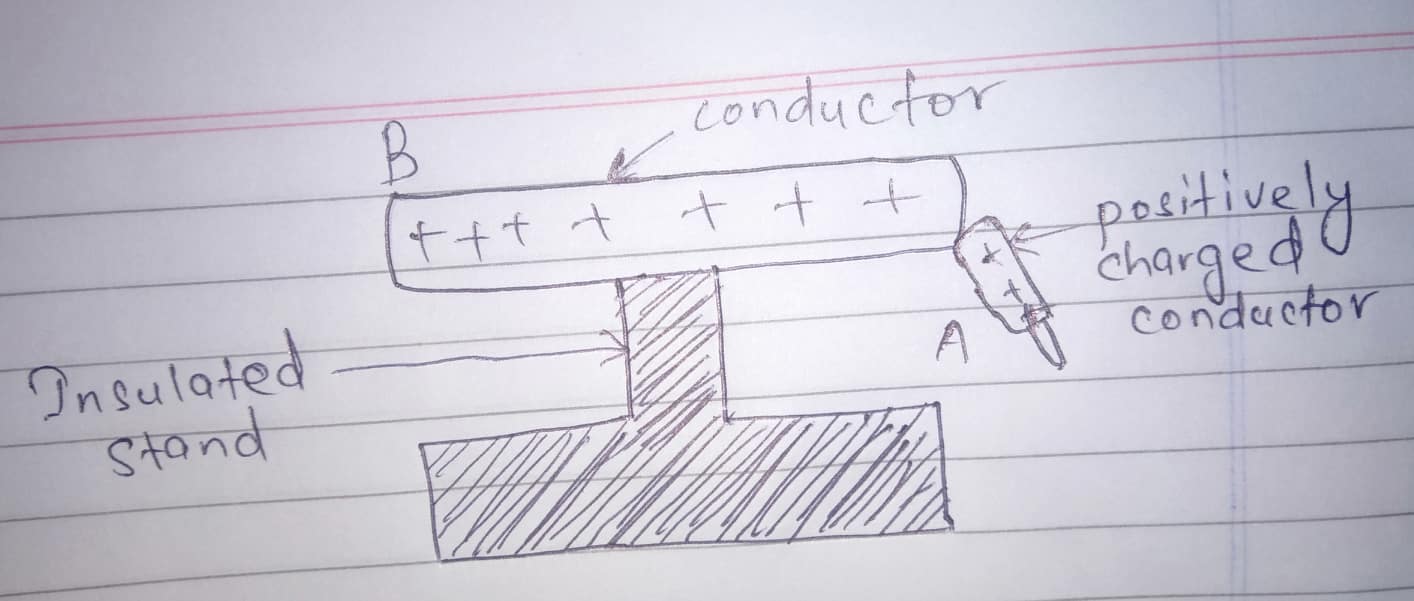 conductor
B
+ + + + + + +
positively
charged
conductor
+
+
A
Insulated
stand